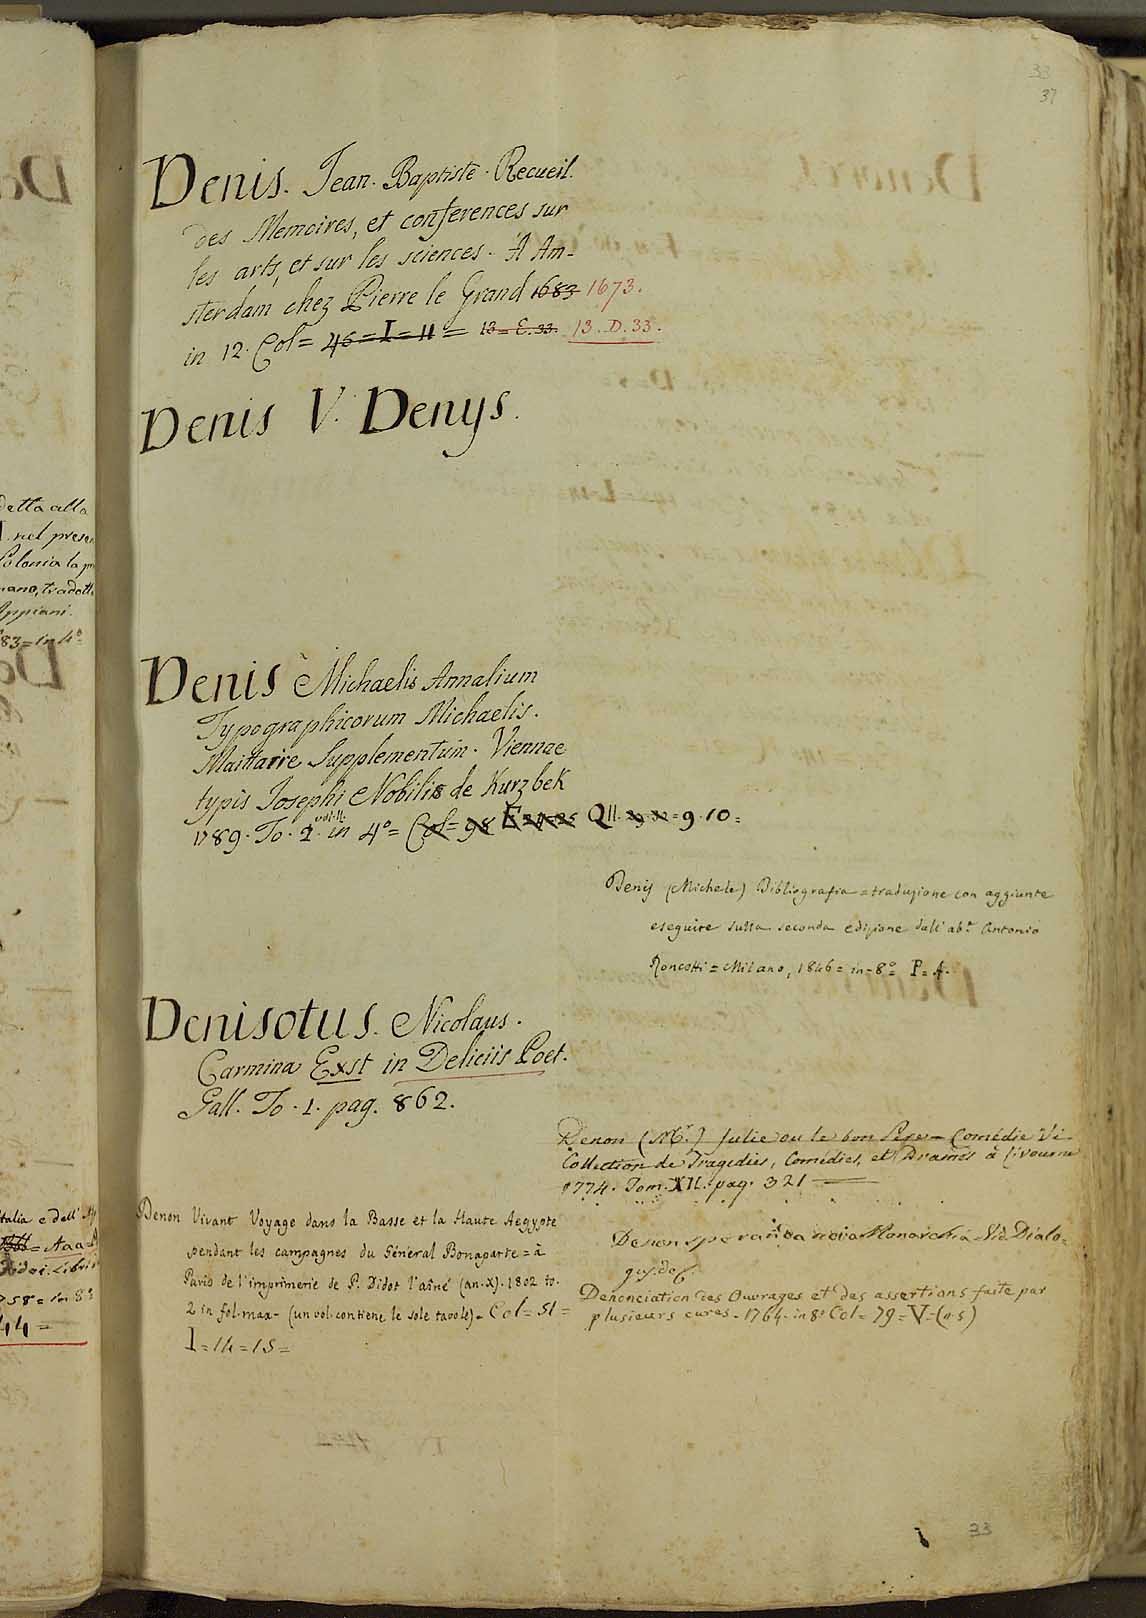 33
37
Denis. Jean. Baptiste. Recueil.
des Memoires, et conferences sur
les arts, et sur les sciences. A Am-
sterdam chez Pierre le Grand 1683 1673.
in 12. Col= 46=I=11= 13=E.33. 13.D.33.
Denis V. Denys.
Denis Michaelis Annalium
Typographicorum Michaelis.
Maittarie Supplementum. Viennae
typis Josephi Nobilis de Kurzbek
1789. To. 2. vol. II. in 4º= Col= 98 QII. =9.10=
Denis (Michele) Bibliografia = traduzione con aggiunte
eseguite sulla seconda edizione dall'ab.e Antonio
Roncetti = Milano, 1846 = in-8º= P.A.
Denisotus. Nicolaus.
Carmina Exst in Deliciis Poet.
Gall. To. 1. pag. 862.
Denon (Mr.) Julie ou le bon Pere = Comédie Vi.
Collection de Tragedies, Comedies, et Drames à Livourne
1774. Tom. XII. pag. 321
Denon Vivant Voyage dans la Basse et la Haute Aegypte
pendant les campagnes du Géneral Bonaparte = à
Paris de l'imprimerie de P. Didot l'aîné (an. X). 1802 to.
2 in fol. max- (un vol. contiene le sole tavole) = Col = 51 =
I = 14 = 15 =
Monarchia Vid. Dialo=
Denonciation des Ouvrages et des assertions faite par
plusieurs cures. 1764. in 8º Col = 79 = V = (n.5)
33
detta alla
nel prese
Polonia la
tradott
Appiani.
83 = in 4º
Italia e dell'
= Aaa
58 = in 8º
44 =